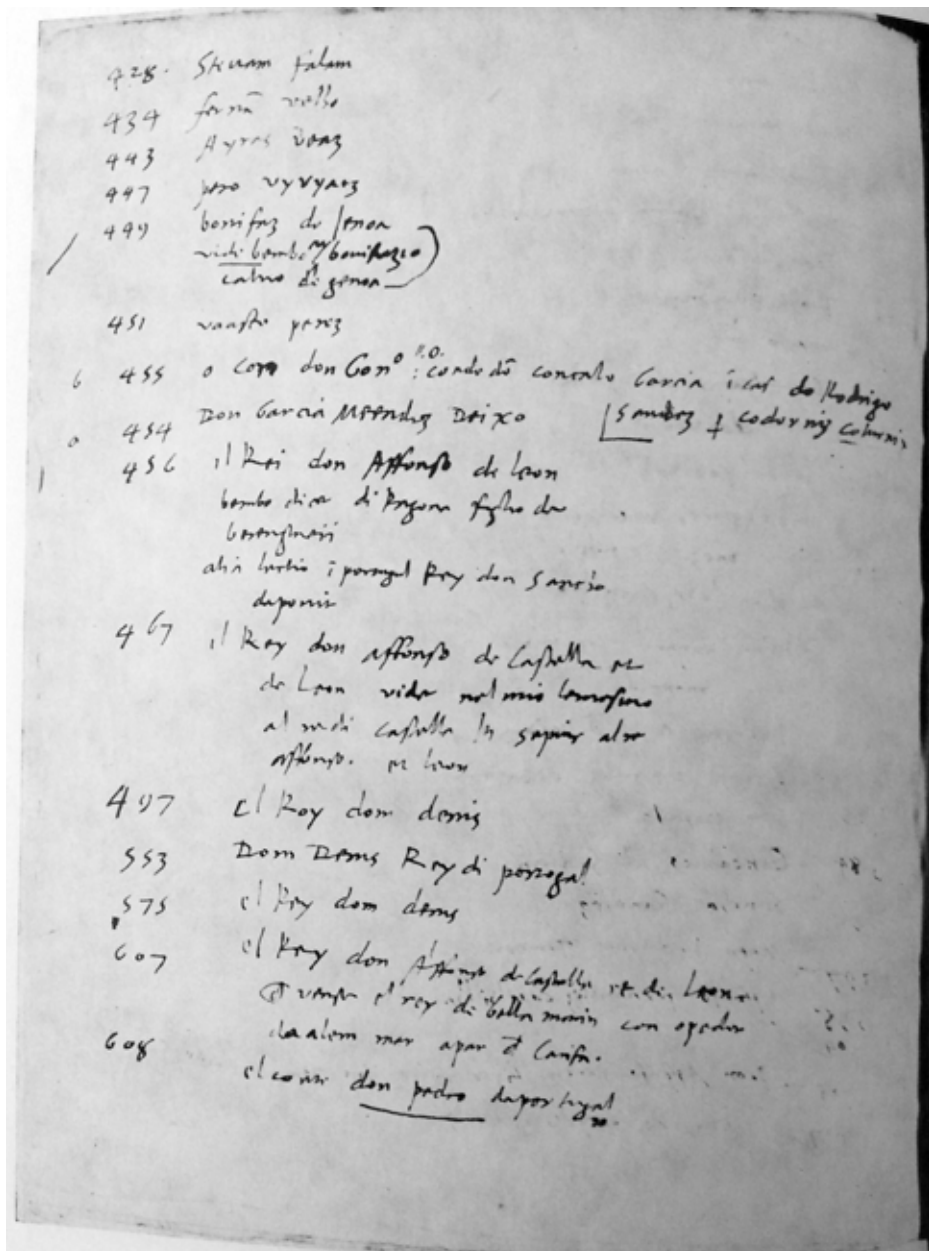 428. Stevam falam
434 fernã vello
443 Ayras veaz
447 pero vyvyaez
449 bonifaz de Jenoa
vidi bembo bonifazio
calvo di genoa
451 vaasco perez
6 455 o con don Gonº : conde dõ concalo Garcia ĩ cas do Rodrigo
0 454 Don Garcia Meendez Deixo Sandez codorniz
456 il Rei don Affonso de leon
bembo dice di Ragona figlio de
berenghieri
alia lectio ĩ portugal Rey don Sancio
deponit
467 il Rey don affonso de Castella et
de Leon vide nel mio
al re di castella
affonso. et leon
497 El Rey dom denis
553 Dom Denis Rey di portogal
575 el Rey dom denis
607 el Rey don Affonso de Castella et de Leon
el rey di bella marin con
alem mar a par
608 el conte don pedro de portugal